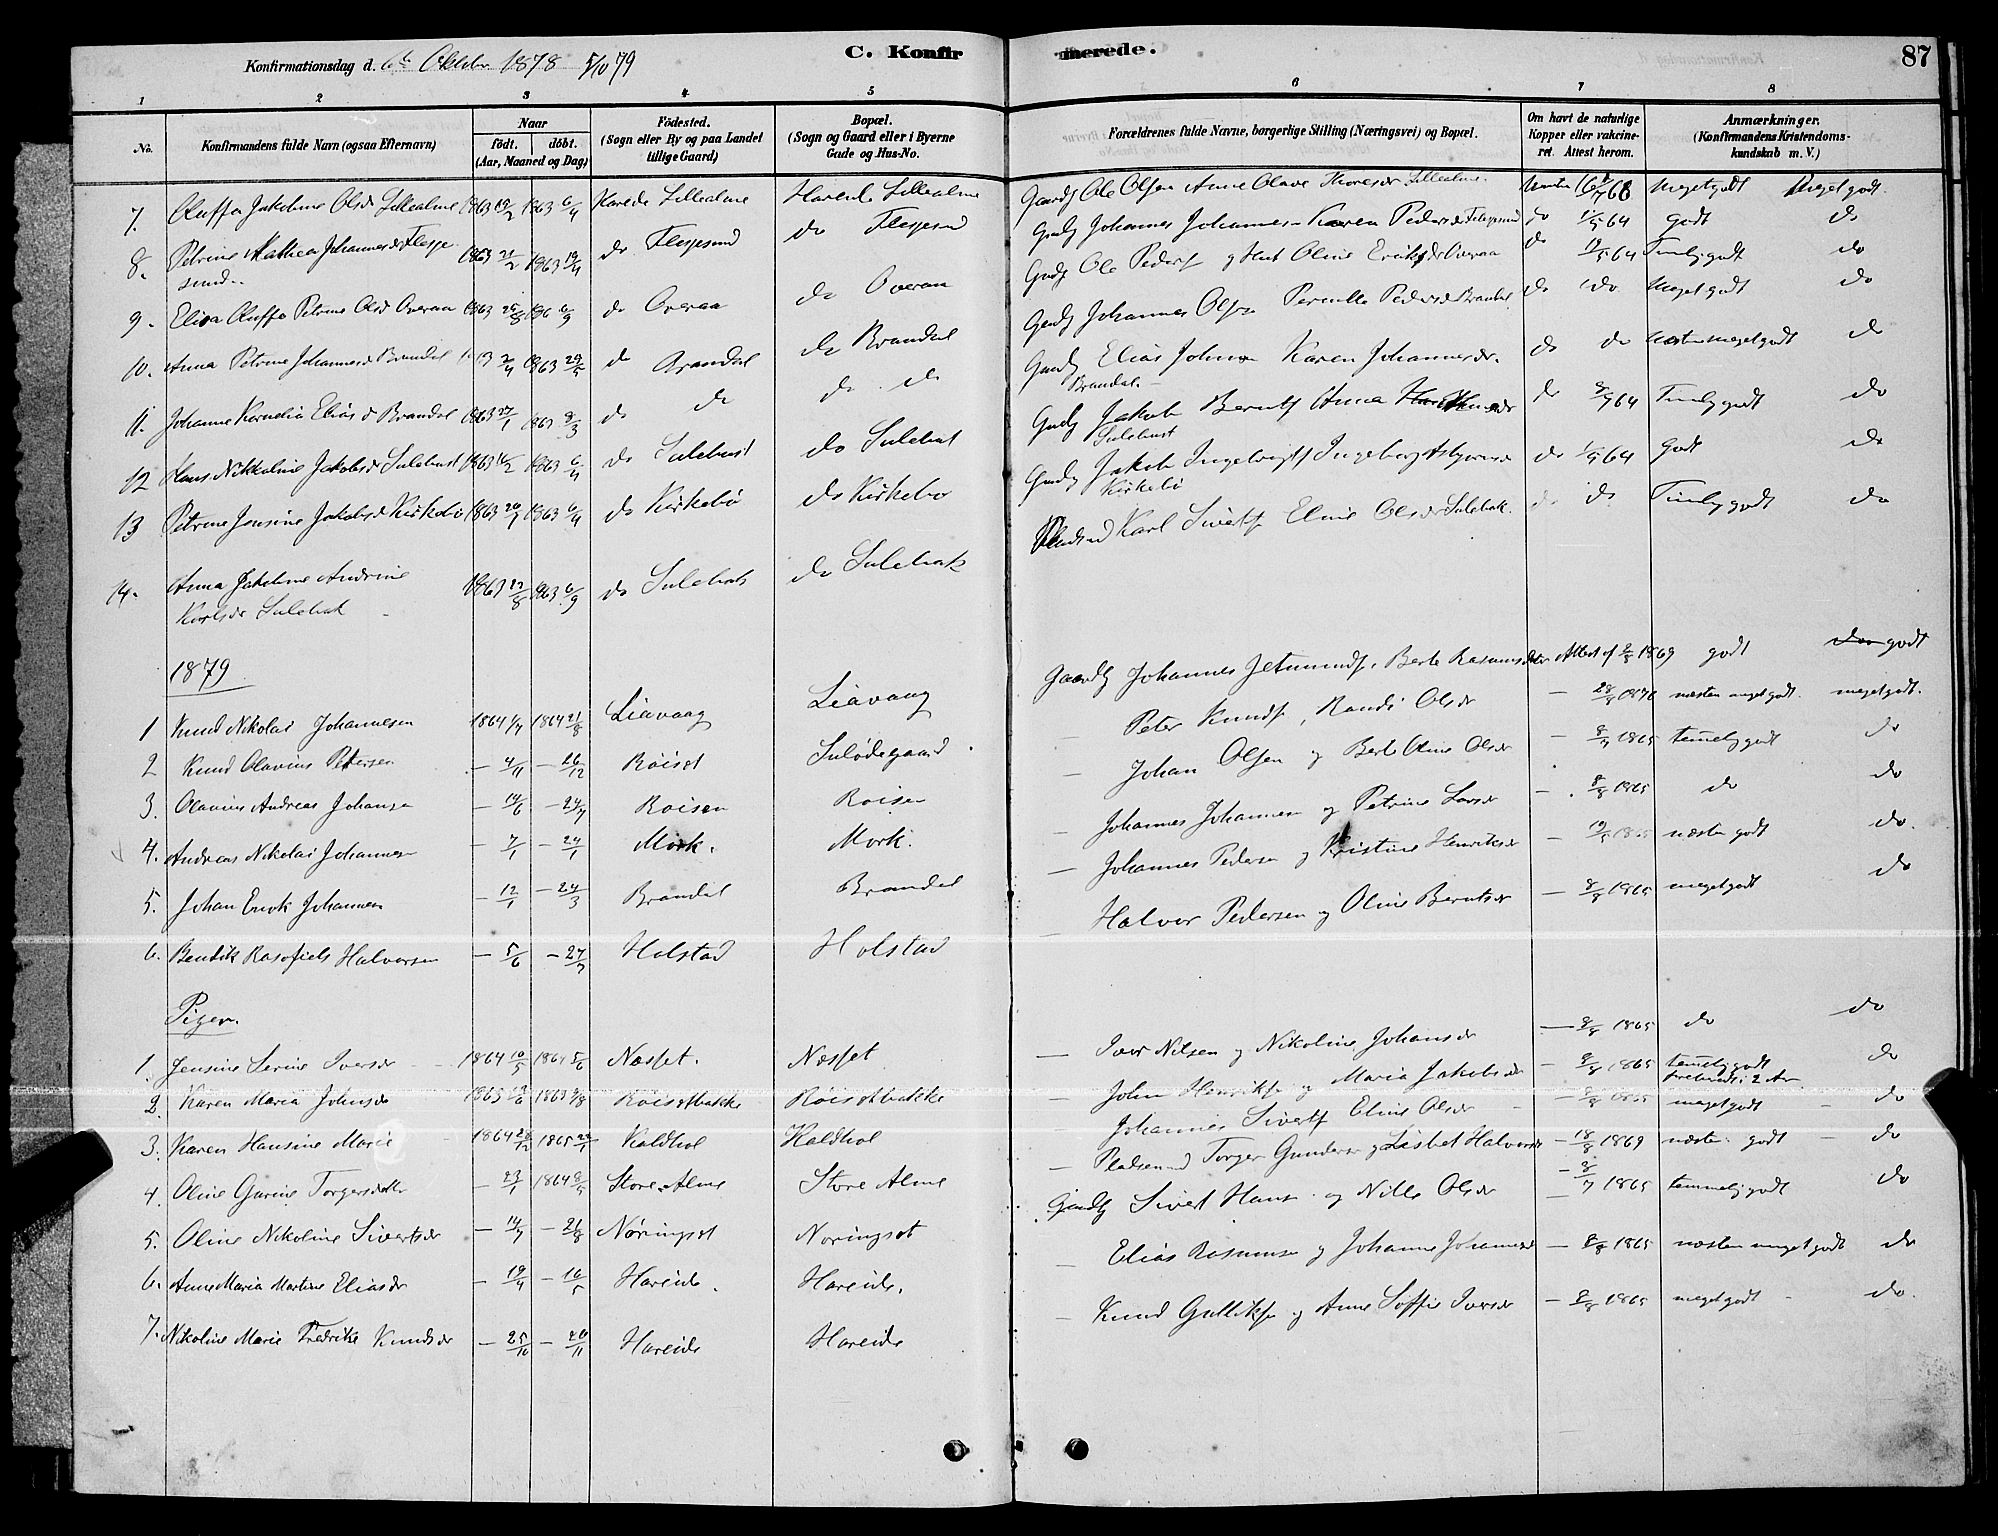 Konfirmationsdag d. 6te Oktober 1878 5/10 79
C. Konfirmerede.
87
1 2 3 4 5 6 7 8
No.
Konfirmandens fulde Navn (ogsaa Efternavn)
Naar
født. døbt.
(Aar, Maaned og Dag)
Fødested.
(Sogn eller By og paa Landet
tillige Gaard)
Bopæl.
(Sogn og Gaard eller i Byerne
Gade og Hus-No.
Forældrenes fulde Navne, borgerlige Stilling (Næringsvei) og Bopæl.
Om havt de naturlige
Kopper eller vakcine-
ret. Attest herom.
Anmærkninger.
(Konfirmandens Kristendoms-
kundskab m. V.)
7. Oluffa Jakobine Olsd Lillealme 1863 1863 6/4 Hareide Lillealme Hareide Lillealme Gaardb Ole Olsen Anne Olave Lillealme 68 Meget godt Meget godt
8. Petrine Mathea Johannesdr Flesje- 1863 21/2 1863 19/4 do Flesjesund do Flesjesund Gaardb Johannes Johannesen Karen Pedersdr Flesjesund do 1/5 64 godt do
sund
9. Elisa Oluffa Petrine Olsd Overaa 1863 25/8 6/9 do Overaa do Overaa Gaardb Ole Peders og Hust Oline Eriksdr Overaa do 64 Temlig godt do
10. Anna Petrine Johannesd Brandal 2/4 1863 do Brandal do Brandal Gaardb Johannes Olsen Pernille Pedersdr Brandal do do Meget godt do
11. Johanne Kornelia Eliasd Brandal 1863 27/1 1863 8/3 do do do do Gaardb Elias Johnsen Karen Johannesdr do do næsten meget godt do
Brandal
12 Hans. Nikkoline Jakobsd Sulehust 1863 1863 6/4 do Sulehust do Sulehust Gaardb Jakob Bernts Anna do 64 Temlig godt do
Sulehust
13 Petrine Jensine Jakobsd Kirkebø 1863 1863 6/4 do Kirkebø do Kirkebø Gaardb Jakob Ingebrigts Ingeborg Asbjørnsdr do 64 Godt do
Kirkebø
14. Anna Jakobine Andrine 1863 1863 6/9 do Sulebak do Sulebak Pladsmd Karl Siverts Eline Olsdr Sulebak do do Temlig godt do
Karlsdr Sulebak
1879
1 Knud Nikolai Johannesen 1864 1864 21/8 Liavaag Liavaag Gaardb Johannes Jetmunds. Berte Rasmusdatter Attest af 1869 godt godt
2 Knud Olavius Petersen - 4/11 - 26/12 Røiset Sulødegaard - Peter Knuds, Randi Olsdr - næsten meget godt. meget godt.
3. Olavius Andreas Johansen - 19/6 - 24/7 Røisen Røisen - Johan Olsen og Berte Oline Olsdr - 1865 temelig godt do
4. Andreas Nikolai Johannesen - 7/1 - 24/1 Mork. Mork. - Johannes Johannesen og Petrine Larsdr - 8/8 1865 do do
5. Johan Enok Johannesen - 12/1 - 24/3 Brandal Brandal - Johannes Pedersen og Kristine Henriksdr - næsten godt do.
6. Bendik Halvorsen - 5/6 - 24/7 Holstad Holstad - Halvor Pedersen og Oline Berntsdr - 8/8 1865 meget godt do
Piger.
1. Jensine Serine Iversdr 1864 10/5 1864 5/6 Næsset. Næsset - Iver Nilsen og Nikoline Johansdr - 8/8 1865 do do
2. Karen Maria Johnsdr 1863 1863 Røisetbakke Røisetbakke - John Henriks og Maria Jakobsdr - 8/8 1865 temelig godt do
2 Aar
3. Karen Hansine Marie 1864 1865 Koldhol Koldhol - Johannes Siverts Eline Olsdr - meget godt - do
4. Oline Gurine Torgersdatter - 23/1 1864 Store Alme Store Alme - Pladsmd Torger Gunders og Lisbet Halvorsdr - 18/8 1869 næsten godt - do
5. Oline Nikoline Sivertsdr - 14/7 - 21/8 Nøringset Nøringset Gaardb Sivert Hans og Nille Olsdr - 1865 temmelig godt do
6. Anne Maria Martine Eliasdr - 19/4 - 16/5 Hareide. Hareide. - Elias Rasmusen og Johanne Johannesdr - 8/8 1865 næsten meget godt do
7. Nikoline Marie Fredrike Knudsdr - 25/10 - 20/11 Hareide Hareide - Knud Gulliks og Anne Soffie Iversdr - 8/8 1865 meget godt - do.